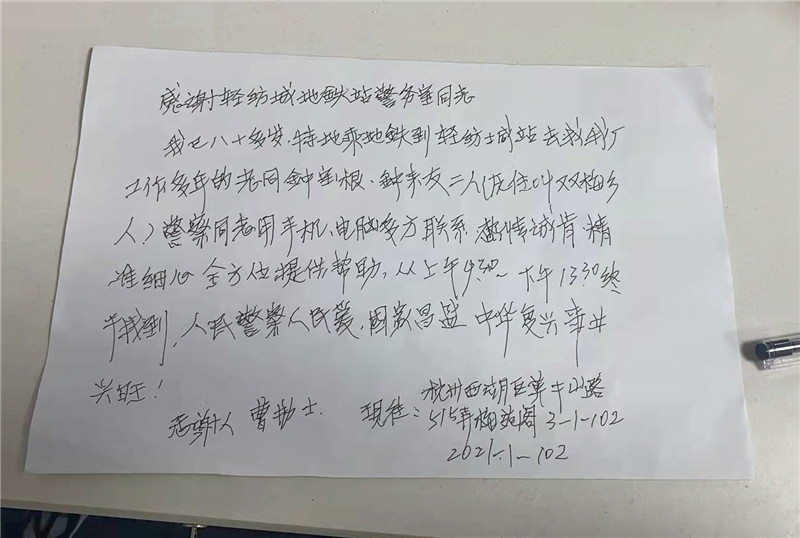 感谢轻纺城地铁站警务室同志
我已八十多岁.特地乘地铁到轻纺城站去找我厂
工作多年的老同 钟 根、钟 友二人(原住叫双梅乡
人)警察同志用手机、电脑多方联系 热情诚肯.精
准细心 全方位提供帮助,从上午9:30~下午13:30终
于找到,人民警察人民爱,国家昌盛 中华复兴事业
兴旺!
志谢人 曹 士. 现住: 杭州西湖区 山路
515弄梅苑阁 3-1-102
2021.1-102